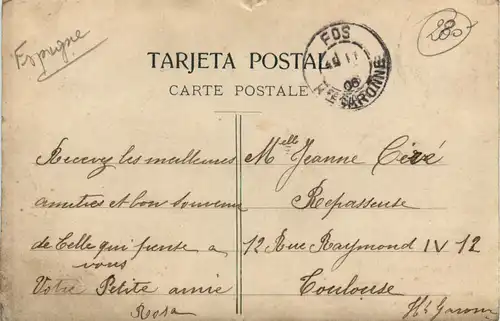 Espagne
280
TARJETA POSTAL
CARTE POSTALE
FOS
11
06
Hte GARONNE
Recevez les meilleures
amitiés et bon souvenir
de Celle qui pense a
vous
Votre Petite amie
Rosa
Melle Jeanne
Repasseuse
12 Rue Raymond IV 12
Toulouse
Hte Garonne